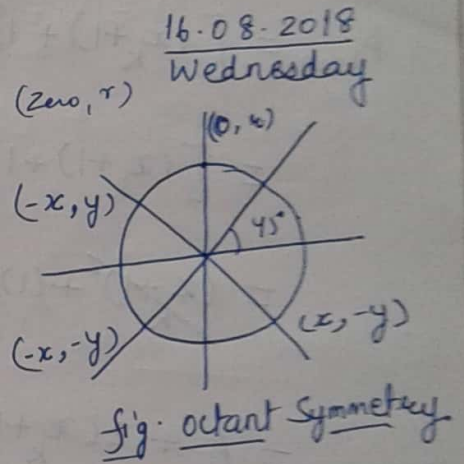 16.08.2018
Wednesday
(Zero, r)
(0, r)
(-x, y)
45°
(x, -y)
(-x, -y)
fig. octant Symmetry